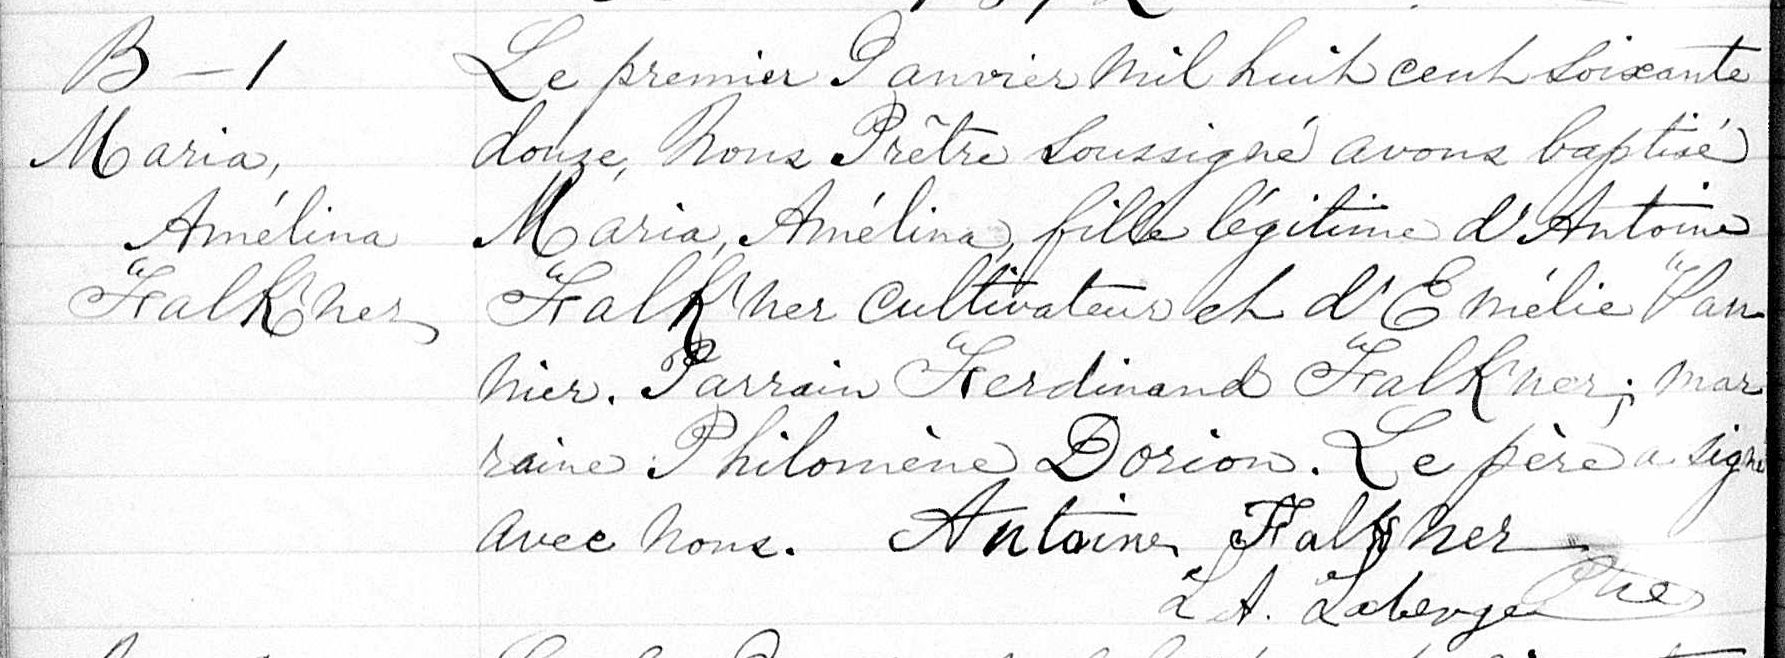 B – 1
Maria,
Amélina
Falk'ner
Le premier Janvier mil huit cent soixante
douze, Nous Prêtre soussigné avons baptisé
Maria, Amélina, fille légitime d'Antoine
Falk'ner cultivateur et d'Emélie Van
nier. Parrain Ferdinand Falk'ner; mar
raine Philomène Dorion. Le père a signé
avec nous. Antoine Falkner
L A. Laberge Ptre